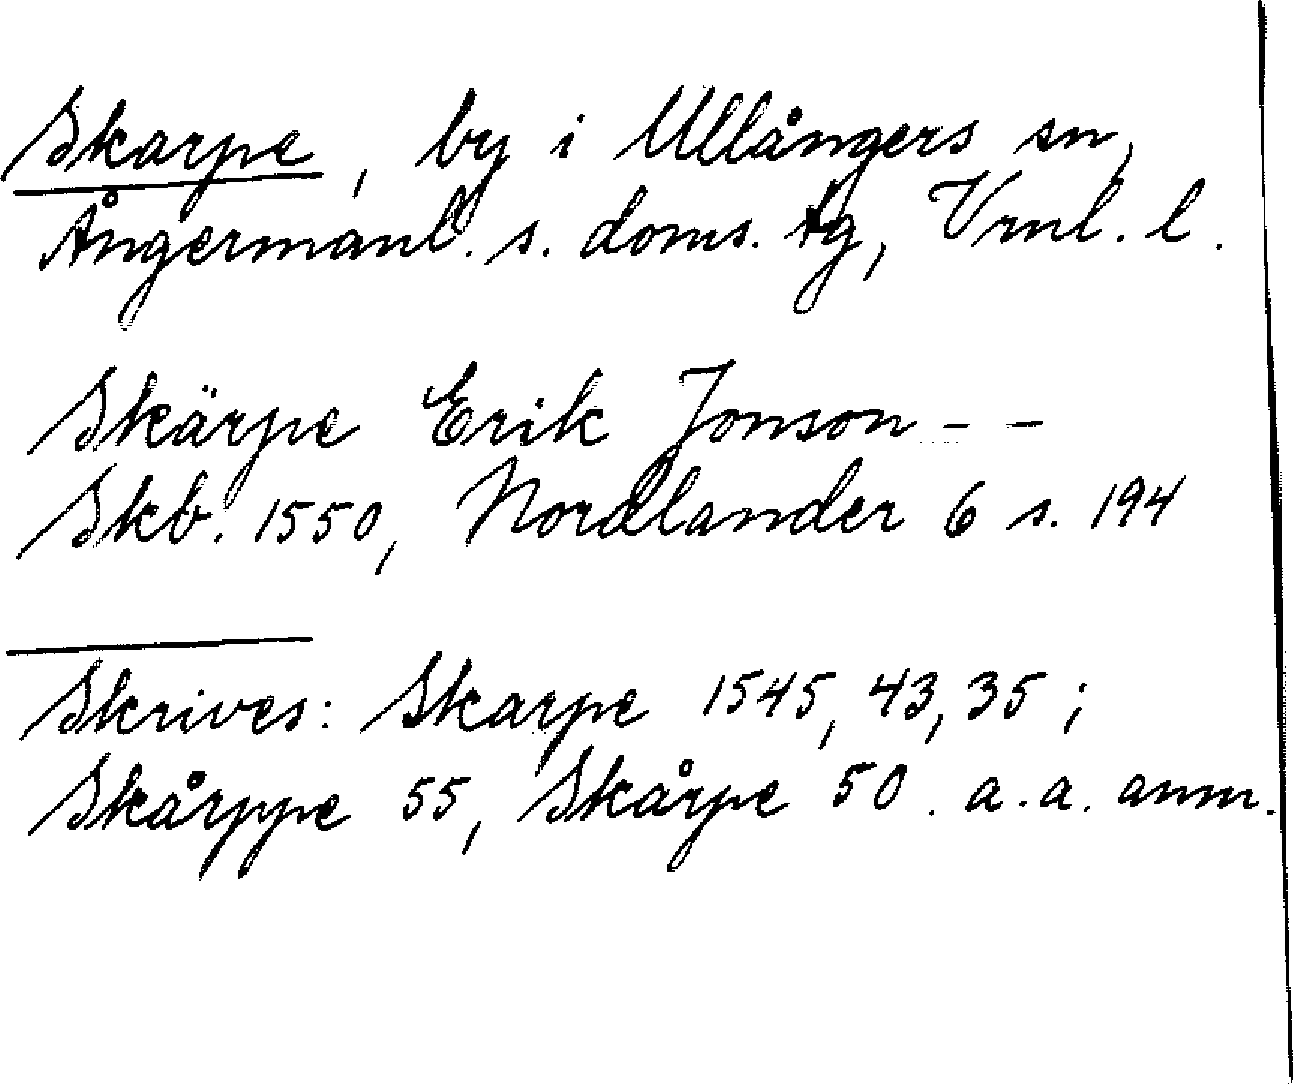 Skarpe, by i Ullångers sn,
Ångermanl. s. doms. tg, Vrnl. l.
Skärpe Erik Jonson - -
Skb. 1550, Nordlander 6 s. 194
Skrives: Skarpe 1545, 43, 35;
Skårppe 55, Skårpe 50. a. a. anm.